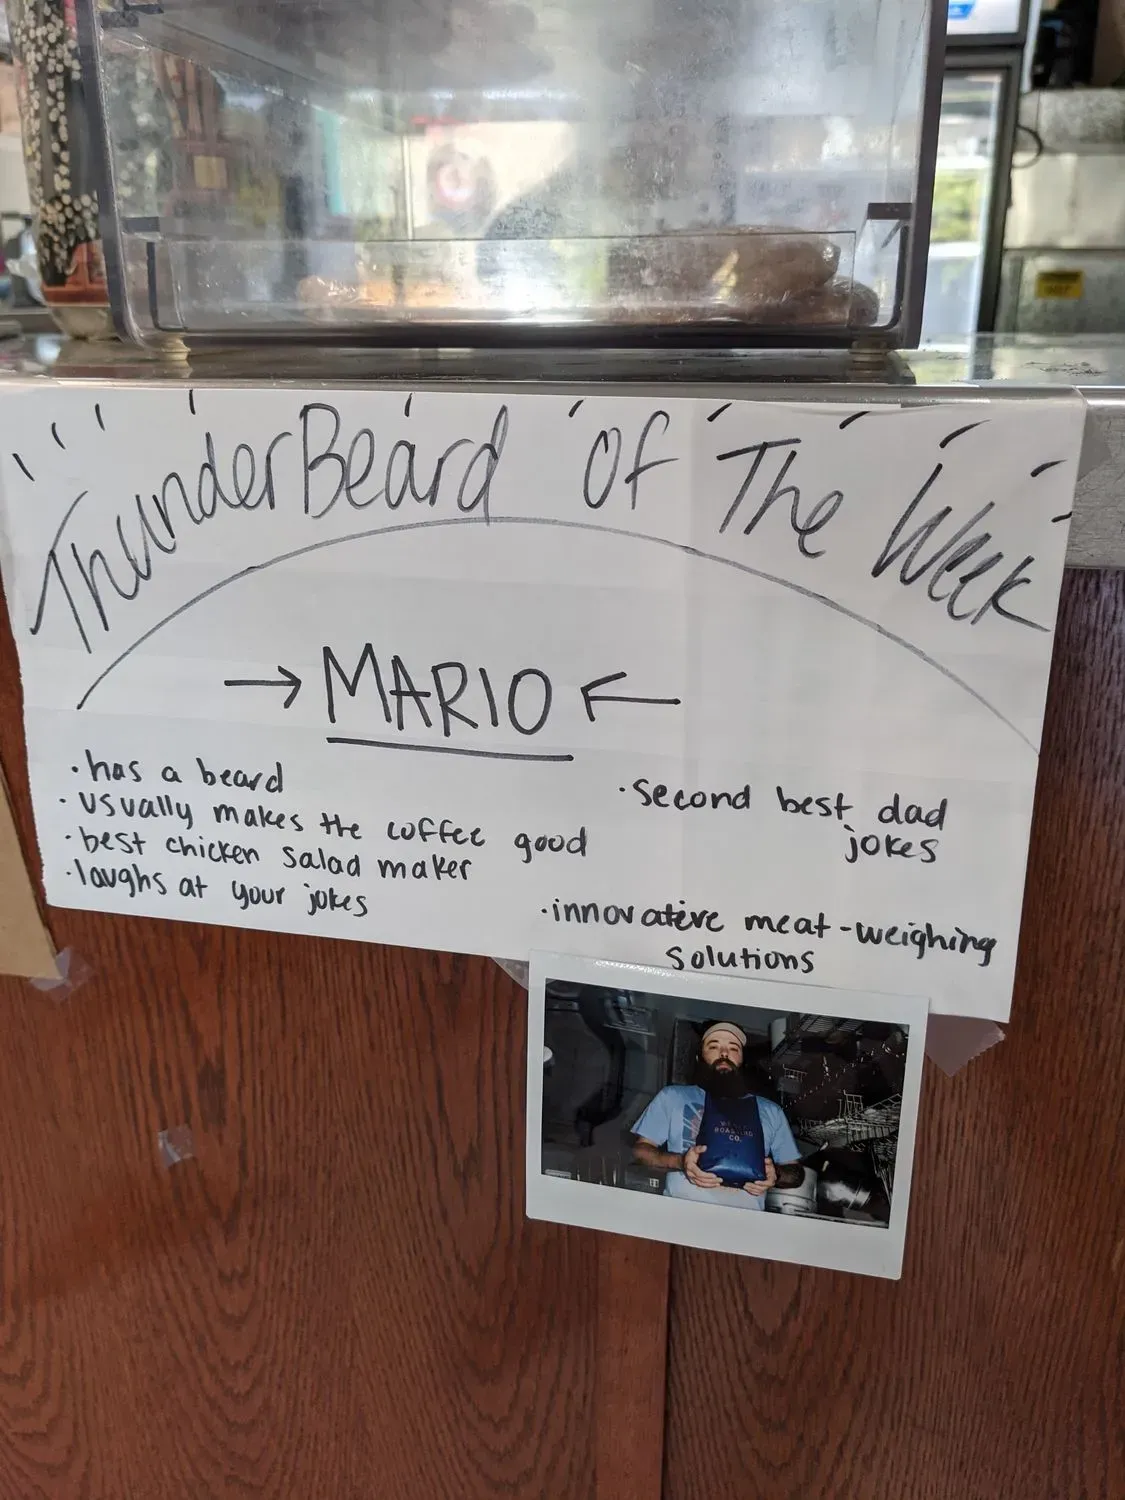 ThunderBeard Of The Week
→ MARIO ←
·has a beard
·usually makes the coffee good
·best chicken salad maker
·laughs at your jokes
·second best dad
jokes
·innovative meat-weighing
solutions
ROASTING
CO.